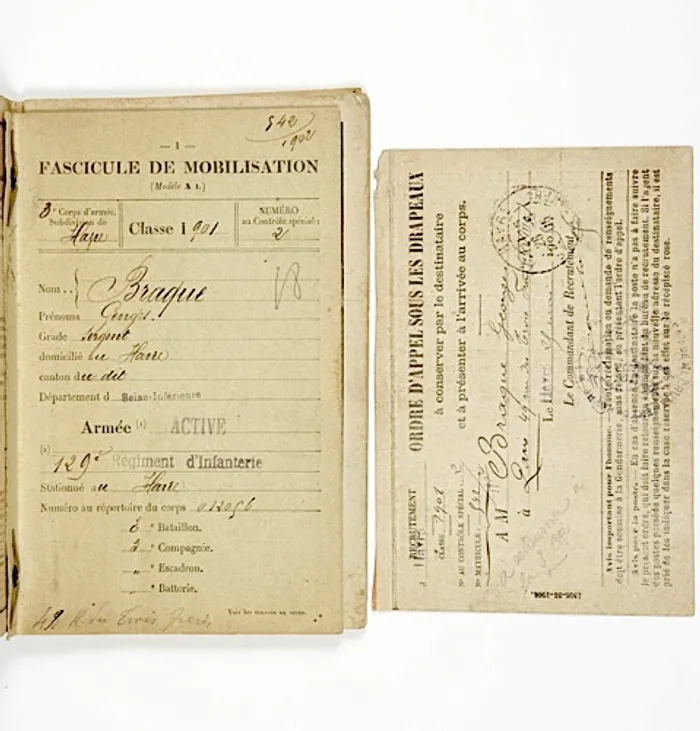 542
1902
— 1 —
FASCICULE DE MOBILISATION
(Modèle A 1.)
3e Corps d'armée.
Subdivision de
Havre
Classe 1901
NUMÉRO
au Contrôle spécial :
2
Nom Braque
Prénoms Georges
Grade Sergent
domicilié au Havre
canton du dit
Département d Seine-Inférieure
Armée (1) ACTIVE
129e Régiment d'Infanterie
Stationné au Havre
Numéro au répertoire du corps 012056
3e Bataillon.
Compagnie.
„ Escadron.
„ Batterie.
Voir les renvois au verso.
48 Rue des Trois Frères
RECRUTEMENT
d
CLASSE 1901
N° AU CONTRÔLE SPÉCIAL :
N° MATRICULE :
ORDRE D'APPEL SOUS LES DRAPEAUX
à conserver par le destinataire
et à présenter à l'arrivée au corps.
A M Braque Georges
à Paris rue des Trois Frères
Le Havre
Le Commandant de Recrutement
Avis important pour l'homme. — Toute réclamation ou demande de renseignements
doit être soumise à la Gendarmerie, sans retard, en présentant l'ordre d'appel.
Avis pour la poste. — En cas d'absence du destinataire la poste n'a pas à faire suivre
le présent ordre, qui doit faire retour au bureau de recrutement. Si l'agent
des postes possède quelques renseignements sur la nouvelle adresse du destinataire, il est
prié de les indiquer dans la case réservée à cet effet sur le récépissé rose.